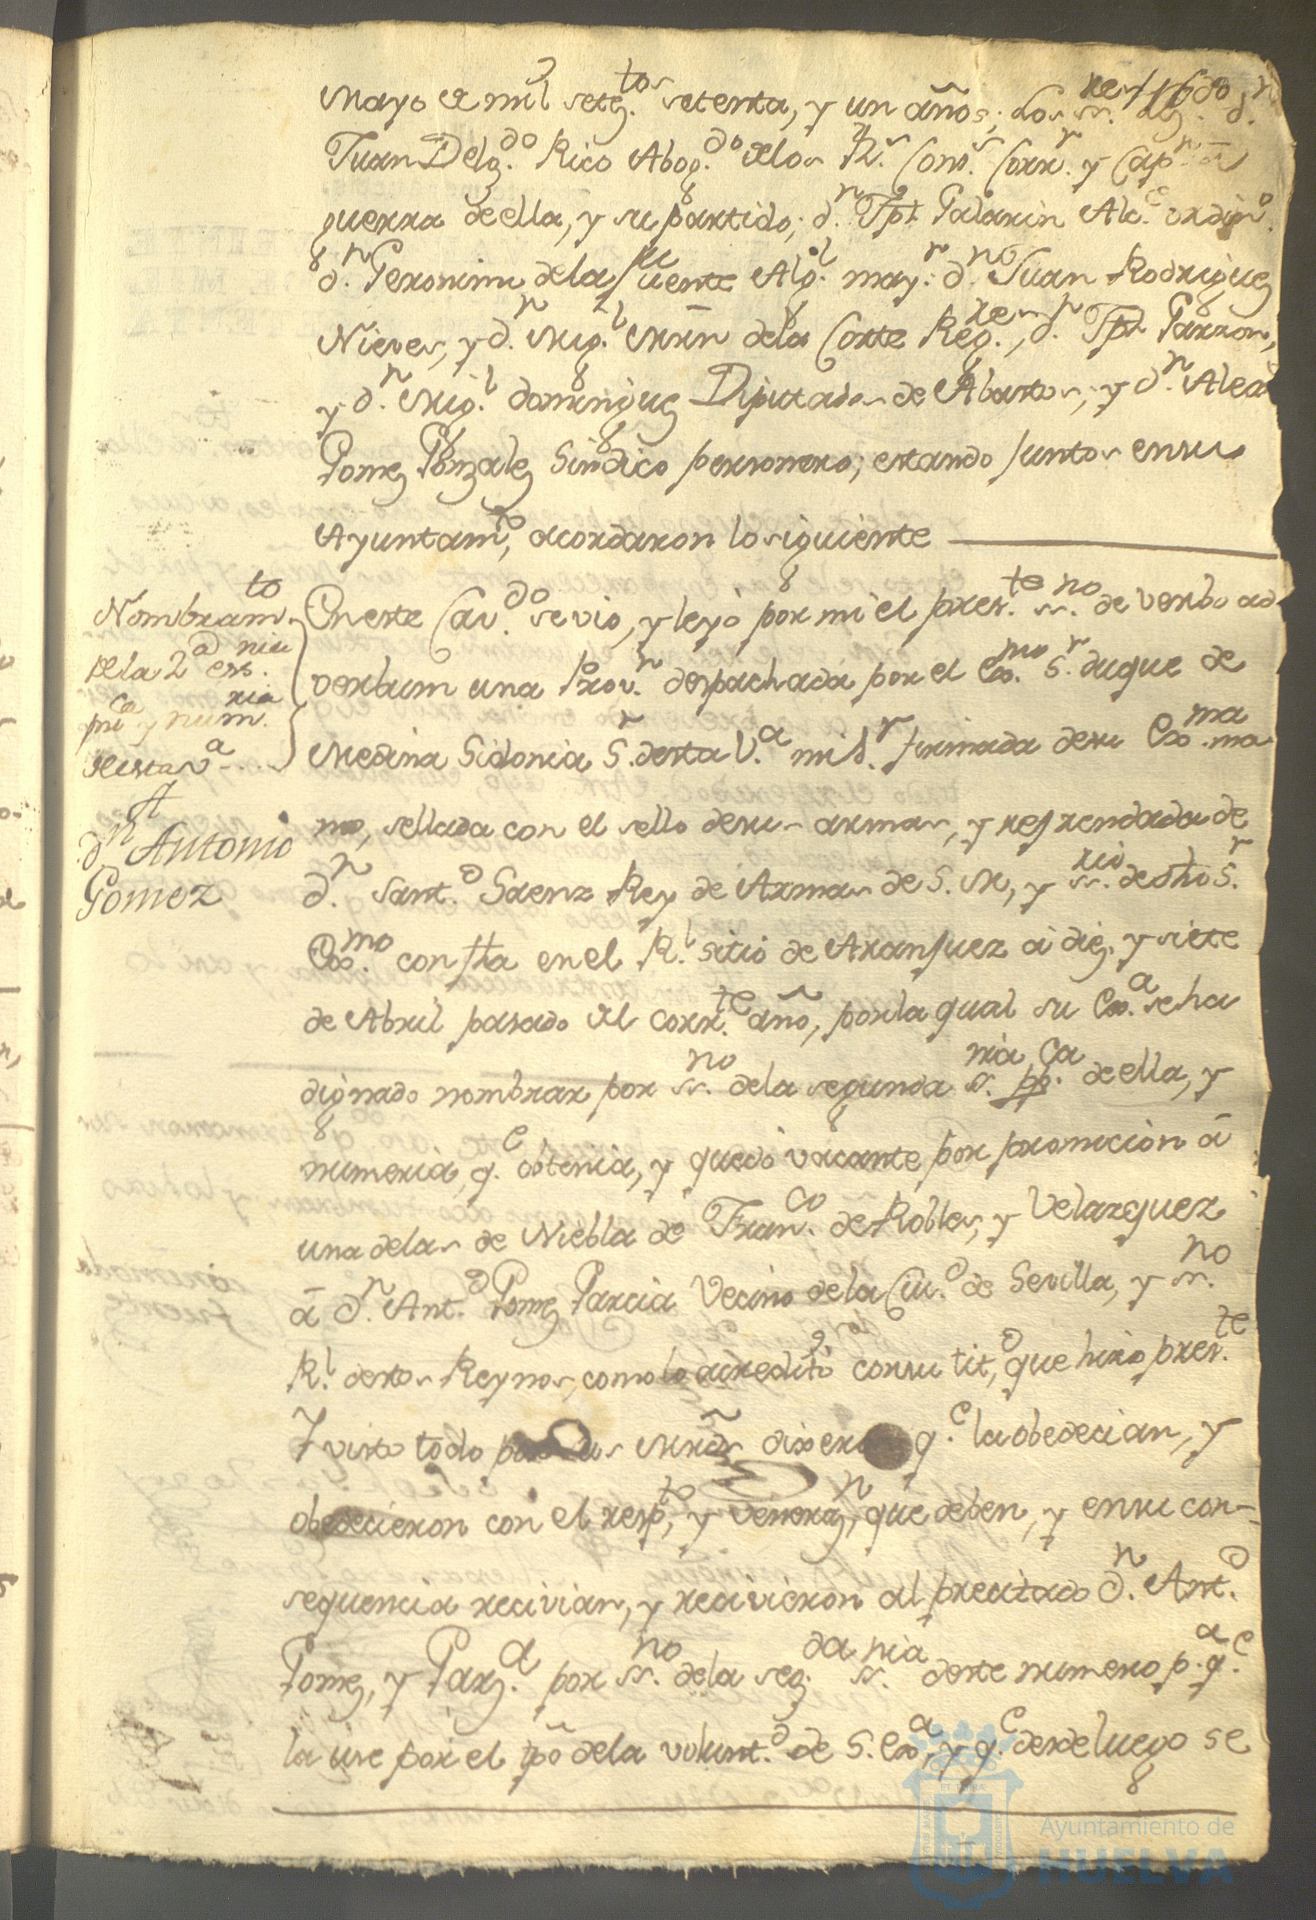 Mayo de mil setez.tos setenta, y un años; los ss.res
Juan Delg.do Rico Abog.do de los R.s Cons.s Corr.r y Cap.n a
guerra de ella, y su partido; d.n Jph Galarin Alc.e ordin.o
d.n Geronimo de la Fuente Alg.l may.r d.n Juan Rodriguez
Nieves, y d.n Mig.l Mrn de la Corte Reg.res, d.n Jph Garzon,
y d.n Mig.l dominguez Diputados de Abastos, y d.n Alexo
Gomez Gonzalez Sindico personero; estando juntos en su
Ayuntam.to, acordaron lo siguiente
Nombram.to
de la 2.a ess.nia
pu.ca y num.ria
de esta v.a
A
d.n Antonio
Gomez
En este Cav.do se vio, y leyó por mi el pres.te ss.no de verbo ad
verbum una Prov.n despachada por el Exmo. S.r duque de
Medina Sidonia S.r desta V.a mi S.r firmada de su Exma. ma
no, sellada con el sello de sus armas, y refrendada de
d.n Sant.o Saenz Rey de Armas de S. M, y ss.rio de dho S.r
Exmo. con fha en el R.l sitio de Aranjuez a diez, y siete
de Abril pasado del corr.te año, por la qual su Exa. se ha
dignado nombrar por ss.no de la segunda ss.nia pp.ca de ella, y
numeria, q.e obtenia, y quedó vacante por promocion á
una de las de Niebla de Fran.co de Robles, y Velazquez
á D.n Ant.o Gomez Garcia Vecino de la Ciu.d de Sevilla, y ss.no
R.l destos Reynos, como lo acreditó con su tit.o, que hizo pres.te
Y visto todo por sus Mrds dixeron q.e la obedecian, y
obedecieron con el resp.to, y veneraz.n, que deben, y en su con-
sequencia recivian, y recivieron al precitado D.n Ant.o
Gomez, y Garz.a por ss.no de la seg.da ss.nia deste numero p.a q.e
la use por el tpo de la volunt.d de S. Exa, y q.e desde luego se
Ayuntamiento de
HUELVA